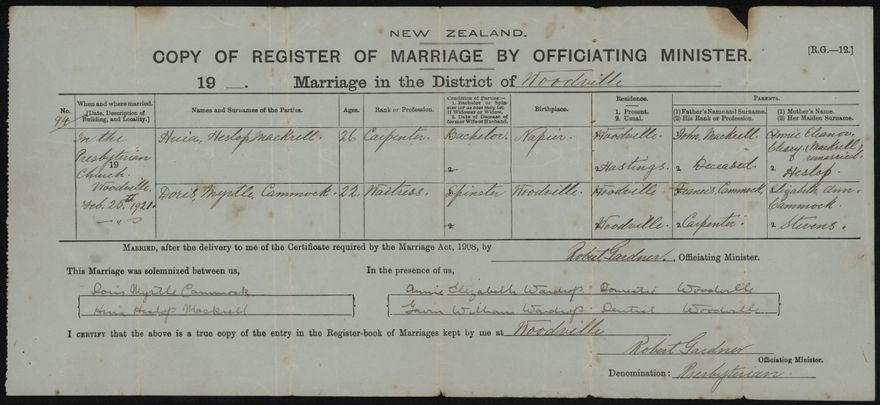 NEW ZEALAND.
COPY OF REGISTER OF MARRIAGE BY OFFICIATING MINISTER.
[R.G.—12.]
19 . Marriage in the District of Woodville
No.
When and where married. (Date, Description of Building, and Locality.)
Names and Surnames of the Parties.
Ages.
Rank or Profession.
Condition of Parties:—
1. Bachelor or Spinster (or as case may be).
If Widower or Widow,
2. Date of Decease of former Wife or Husband.
Birthplace.
Residence.
1. Present.
2. Usual.
PARENTS.
(1) Father's Name and Surname.
(2) His Rank or Profession.
(1) Mother's Name.
(2) Her Maiden Surname.
In the
Presbyterian
19
Church.
Woodville.
Feb. 25th 1921.
Huia, Heslop Mackrell. 26 Carpenter. Bachelor. Napier. Woodville. John, Mackrell. Annie Eleanor,
Mackrell,
remarried.
2 2 Hastings. 2 Deceased. 2 Heslop.
Doris, Myrtle, Cammock. 22. Waitress. Spinster Woodville. Woodville. Francis, Cammock Elizabeth Ann.
Cammock.
2 Woodville. 2 Carpenter. 2 Stevens.
MARRIED, after the delivery to me of the Certificate required by the Marriage Act, 1908, by Robert Gardner., Officiating Minister.
This Marriage was solemnized between us,
In the presence of us,
Doris Myrtle Cammock
Annie Elizabeth Wardrop Domestic Woodville
Huia Heslop Mackrell
Gavin William Wardrop Dentist Woodville
I CERTIFY that the above is a true copy of the entry in the Register-book of Marriages kept by me at Woodville
Robert Gardner
Officiating Minister.
Denomination: Presbyterian.